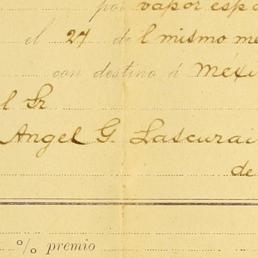 por vapor esp
el 27 del mismo me
con destino á Mexi
l Sr
Angel G. Lascurai
de
% premio